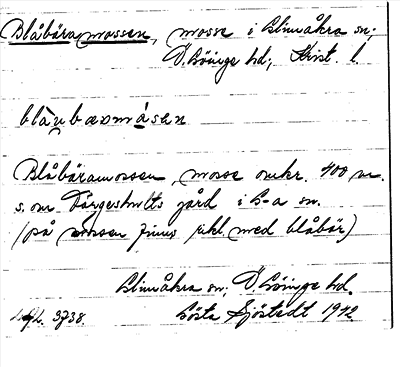 Blåbäramossen, mosse i Glimåkra sn;
V. Göinge hd; Krist. l.
blåubæṛmåsen
Blåbäramossen, mosse omkr. 400 m.
s. om Färgeshults gård i G-a sn.
(på mossen finns rikl. med blåbär)
Glimåkra sn; V. Göinge hd.
3738. Gösta Sjöstedt 1942